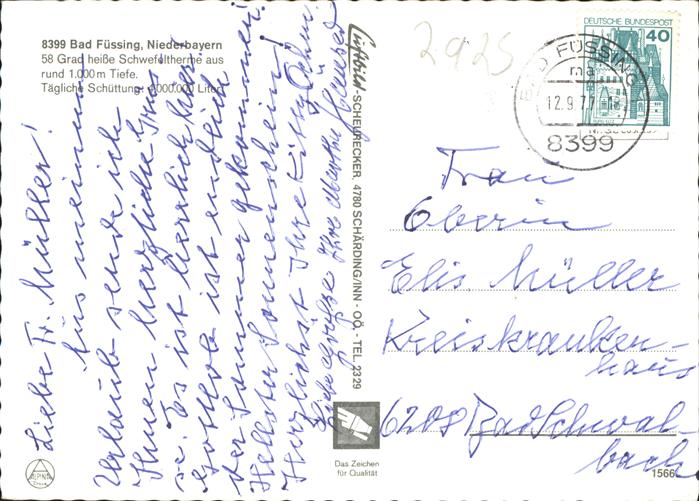 8399 Bad Füssing, Niederbayern
58 Grad heiße Schwefeltherme aus
rund 1.000 m Tiefe.
Tägliche Schüttung: 4000.000 Liter
Liebe Fr. Müller!
Aus meinem
Urlaub sende ich
Ihnen herzliche Grüs-
se. Es ist herrlich hier
Gottlob ist endlich
der Sommer gekommen.
Hellster Sonnenschein!
Herzlichst Ihre
Liebe Grüße Ihre
Luftbild-SCHEURECKER, 4780 SCHÄRDING/INN - OÖ. - TEL. 23 29
2925
DEUTSCHE BUNDESPOST
40
BAD FÜSSING
12.9.77
8399
Frau
Oberin
Elis. Müller
Kreiskranken-
haus
6208 Bad Schwal-
bach
Das Zeichen
für Qualität
1566
ALPINA